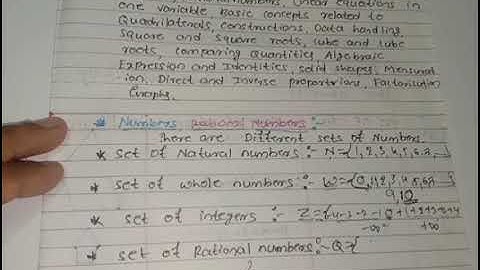 numbers, Linear equations in
one variable, Basic concepts related to
Quadrilaterals, Constructions, Data handling
square and square roots, cube and cube
roots, comparing Quantities, Algebraic
Expression and Identities, solid shapes, Mensurat
ion, Direct and Inverse proportions, Factorisation
Graphs.
* Numbers Rational Numbers:-
There are Different sets of Numbers
* set of Natural numbers :- N={1,2,3,4,5,6,
* set of whole numbers :- W={0,1,2,3,4,5,6,
9,10
* set of integers :- Z={
-∞ +∞
* set of Rational numbers:- Q={